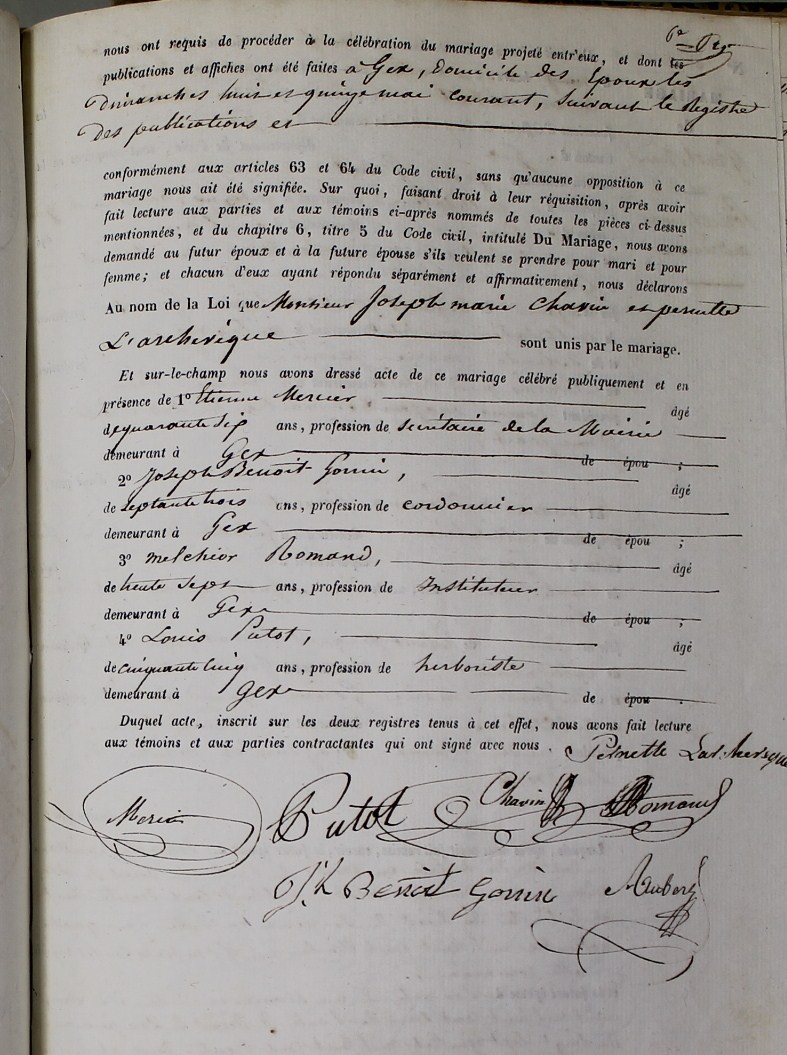 nous ont requis de procéder à la célébration du mariage projeté entr'eux, et dont les
publications et affiches ont été faites à Gex, Domicile des Epoux les
Dimanches huit et quinze mai courant, suivant le Registre
Des publications et
conformément aux articles 63 et 64 du Code civil, sans qu'aucune opposition à ce
mariage nous ait été signifiée. Sur quoi, faisant droit à leur réquisition, après avoir
fait lecture aux parties et aux témoins ci-après nommés de toutes les pièces ci-dessus
mentionnées, et du chapitre 6, titre 5 du Code civil, intitulé Du Mariage, nous avons
demandé au futur époux et à la future épouse s'ils veulent se prendre pour mari et pour
femme; et chacun d'eux ayant répondu séparément et affirmativement, nous déclarons
Au nom de la Loi que Monsieur Joseph marie Chavin et pernette
L'archevêque sont unis par le mariage.
Et sur-le-champ nous avons dressé acte de ce mariage célébré publiquement et en
présence de 1º Etienne Mercier âgé
de quarante six ans, profession de secrétaire de la Mairie
demeurant à Gex de épou ;
2º Joseph Benoit Gonin, âgé
de septante trois ans, profession de cordonnier
demeurant à Gex de épou ;
3º melchior Romand, âgé
de trente sept ans, profession de Instituteur
demeurant à Gex de épou ;
4º Louis Putot, âgé
de cinquante cinq ans, profession de herboriste
demeurant à Gex de épou .
Duquel acte, inscrit sur les deux registres tenus à cet effet, nous avons fait lecture
aux témoins et aux parties contractantes qui ont signé avec nous . Pernette Larchevêque
Mercier Putot Chavin Romand
Jh Benoit Gonin Aubert